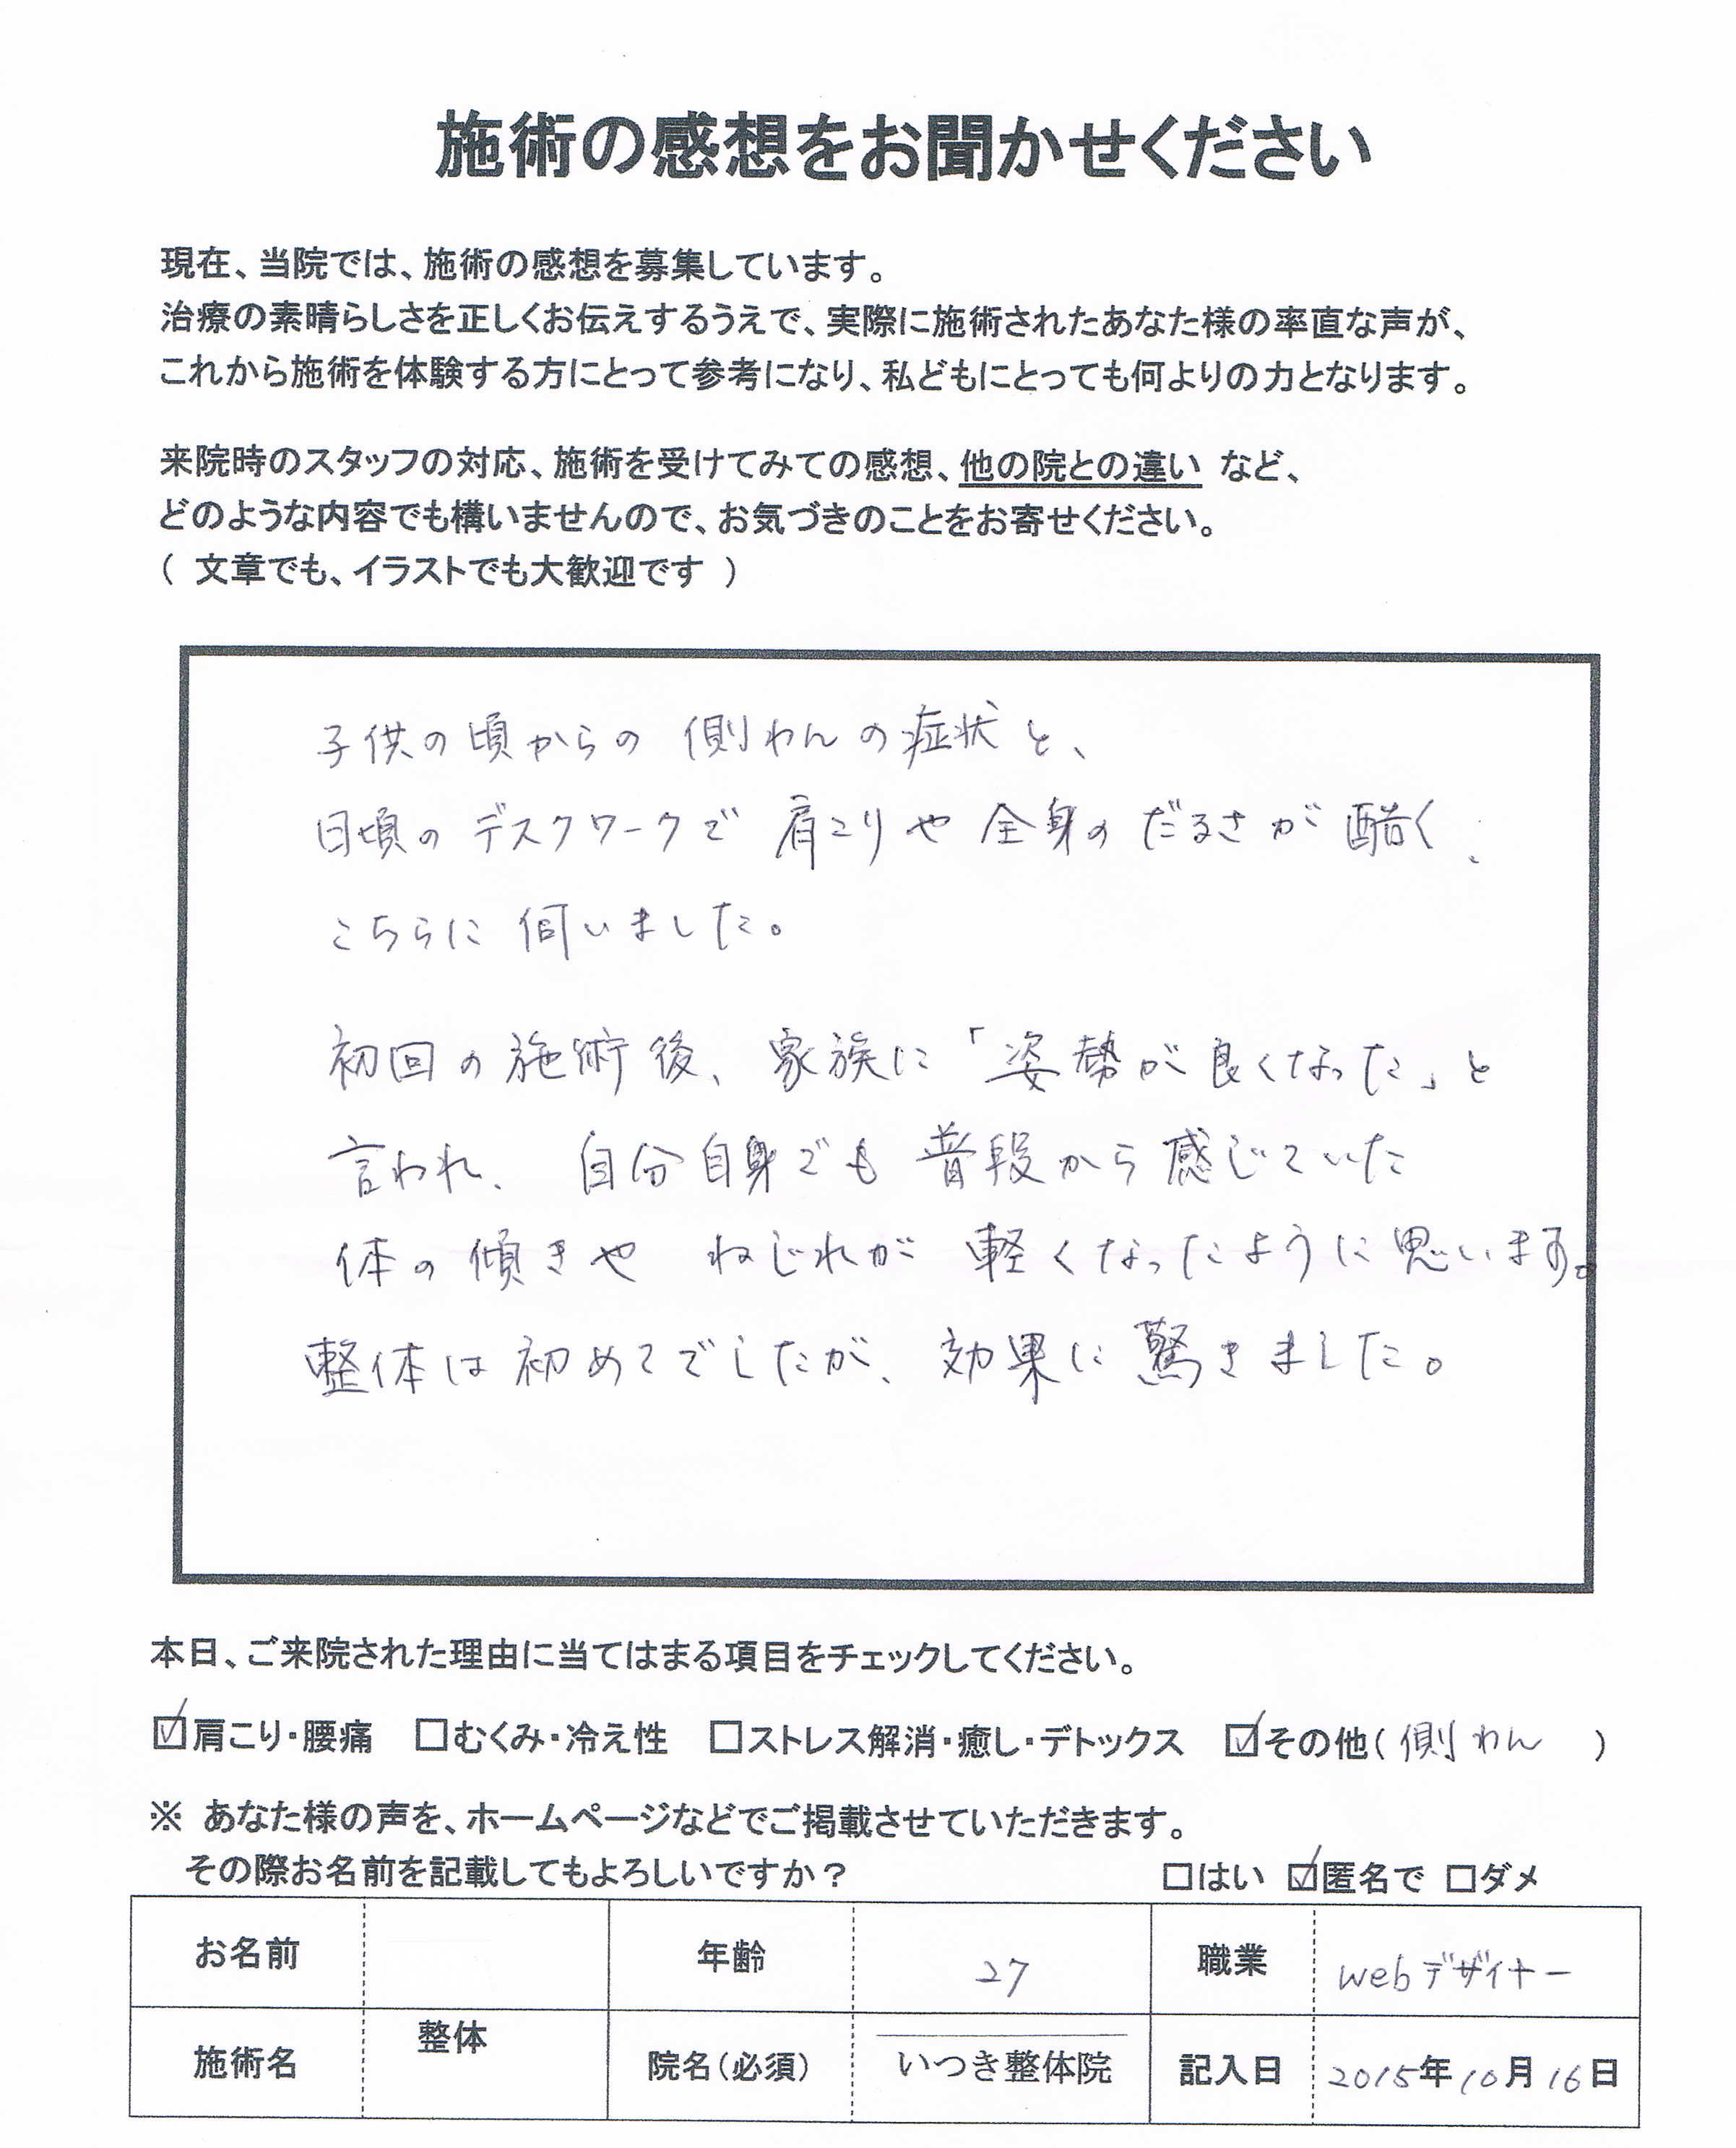 施術の感想をお聞かせください
現在、当院では、施術の感想を募集しています。
治療の素晴らしさを正しくお伝えするうえで、実際に施術されたあなた様の率直な声が、
これから施術を体験する方にとって参考になり、私どもにとっても何よりの力となります。
来院時のスタッフの対応、施術を受けてみての感想、他の院との違い など、
どのような内容でも構いませんので、お気づきのことをお寄せください。
( 文章でも、イラストでも大歓迎です )
子供の頃からの 側わんの症状と、
日頃の デスクワークで 肩こりや 全身の だるさが 酷く、
こちらに 伺いました。
初回の施術後、家族に「姿勢が良くなった」と
言われ、自分自身でも 普段から感じていた
体の傾きや ねじれが 軽くなったように思います。
整体は初めてでしたが、効果に驚きました。
本日、ご来院された理由に当てはまる項目をチェックしてください。
☑肩こり・腰痛 □むくみ・冷え性 □ストレス解消・癒し・デトックス ☑その他( 側わん )
※ あなた様の声を、ホームページなどでご掲載させていただきます。
その際お名前を記載してもよろしいですか? □はい ☑匿名で □ダメ
お名前 年齢 27 職業 webデザイナー
施術名 整体 院名(必須) いつき整体院 記入日 2015年10月16日